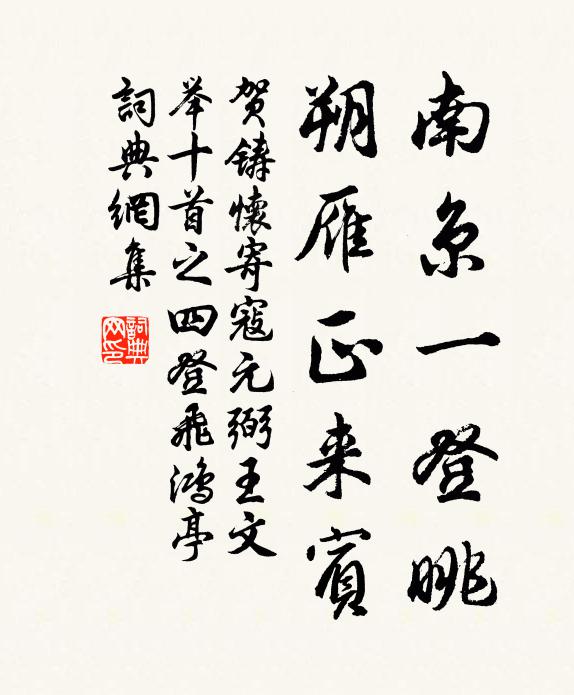 南京一登眺
朔雁正来賓
贺鑄懷寄寇元弼王文
举十首之四登飛鴻亭
詞典網集
詞典网印